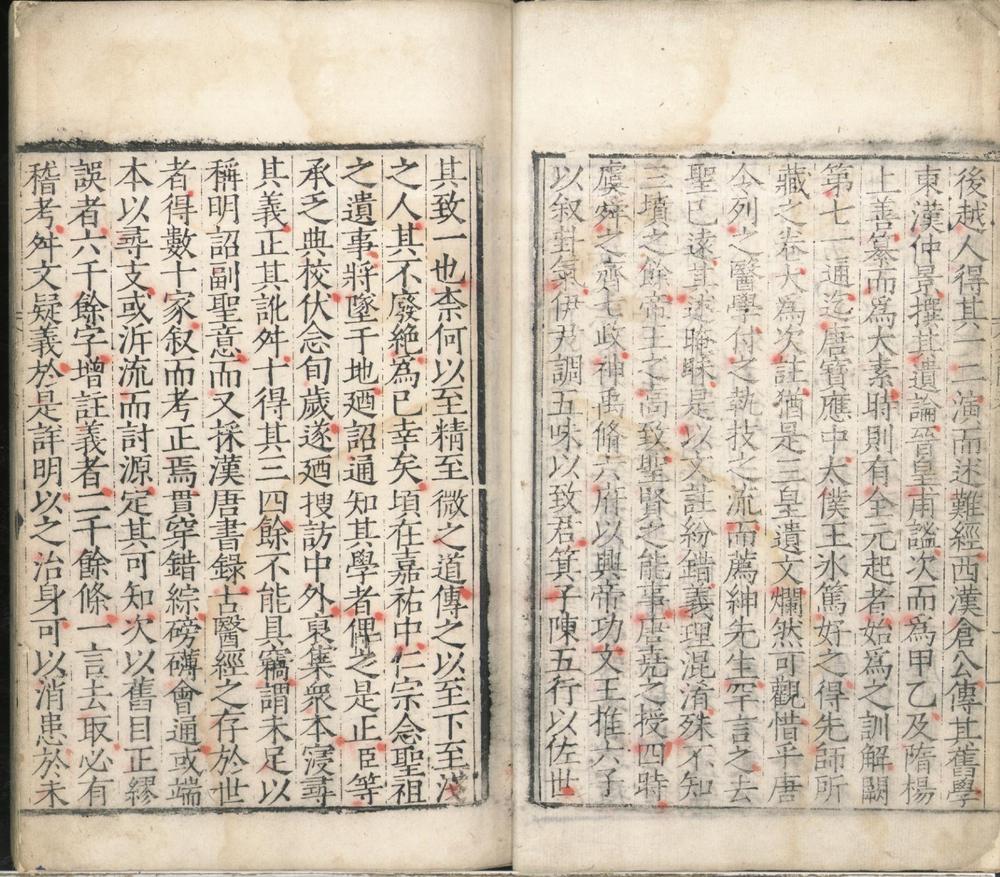 後越人得其一二演而述難經西漢倉公傳其舊學
東漢仲景撰其遺論晉皇甫謐次而為甲乙及隋楊
上善纂而爲大素時則有全元起者始為之訓解闕
第七一通迄唐寶應中太僕王氷篤好之得先師所
藏之卷大爲次註猶是三皇遺文爛然可觀惜乎唐
令列之醫學付之執技之流而薦紳先生罕言之去
聖已遠其述晻昧是以文註紛錯義理混淆殊不知
三墳之餘帝王之高致聖賢之能事唐堯之授四時
虞舜之齊七政神禹脩六府以興帝功文王推六子
以叙卦氣伊尹調五味以致君箕子陳五行以佐世
其致一也柰何以至精至微之道傳之以至下至淺
之人其不廢絶為已幸矣頃在嘉祐中仁宗念聖祖
之遺事將墜于地廼詔通知其學者俾之是正臣等
承乏典校伏念旬歲遂廼搜訪中外裒集衆本寖尋
其義正其訛舛十得其三四餘不能具竊謂未足以
稱明詔副聖意而又採漢唐書録古醫經之存於世
者得數十家叙而考正焉貫穿錯綜磅礴會通或端
本以尋支或泝流而討源定其可知次以舊目正繆
誤者六千餘字增註義者二千餘條一言去取必有
稽考舛文疑義於是詳明以之治身可以消患於未